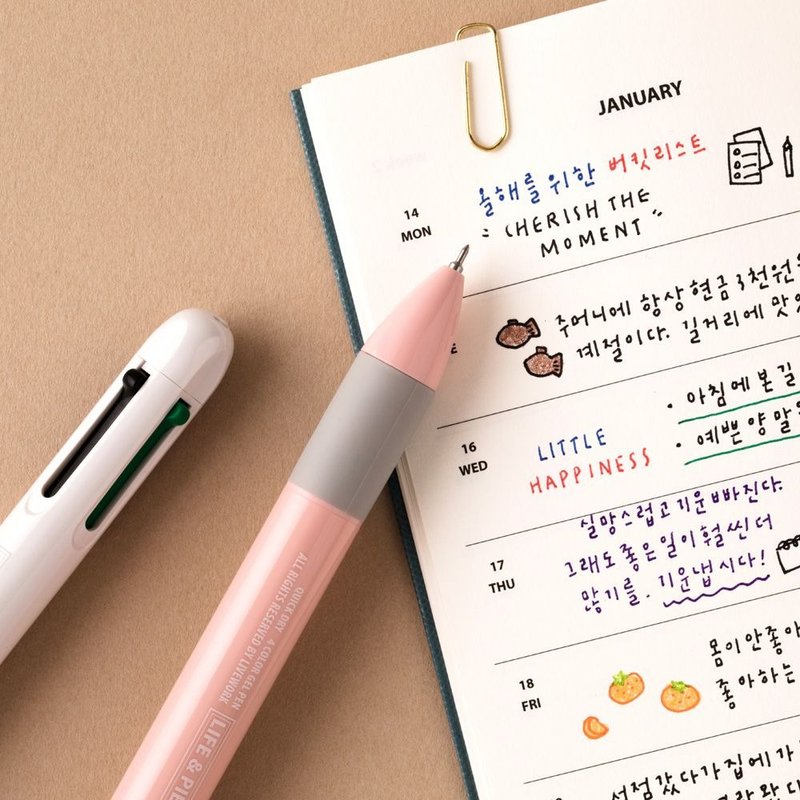 JANUARY
14
MON
올해를 위한 버킷리스트
"CHERISH THE
MOMENT"
주머니에 항상 현금 3천원
계절이다. 길거리에 맛
E
16
WED
LITTLE
HAPPINESS
· 아침에 본 길
· 예쁜 양말
17
THU
실망스럽고 기운 빠진다.
그래도 좋은 일이 훨씬 더
많기를. 기운냅시다!
18
FRI
몸이 안좋아
좋아하는
서점갔다가 집에 가
QUICK DRY 4 COLOR GEL PEN
ALL RIGHTS RESERVED BY LIVEWORK
LIFE & PIE